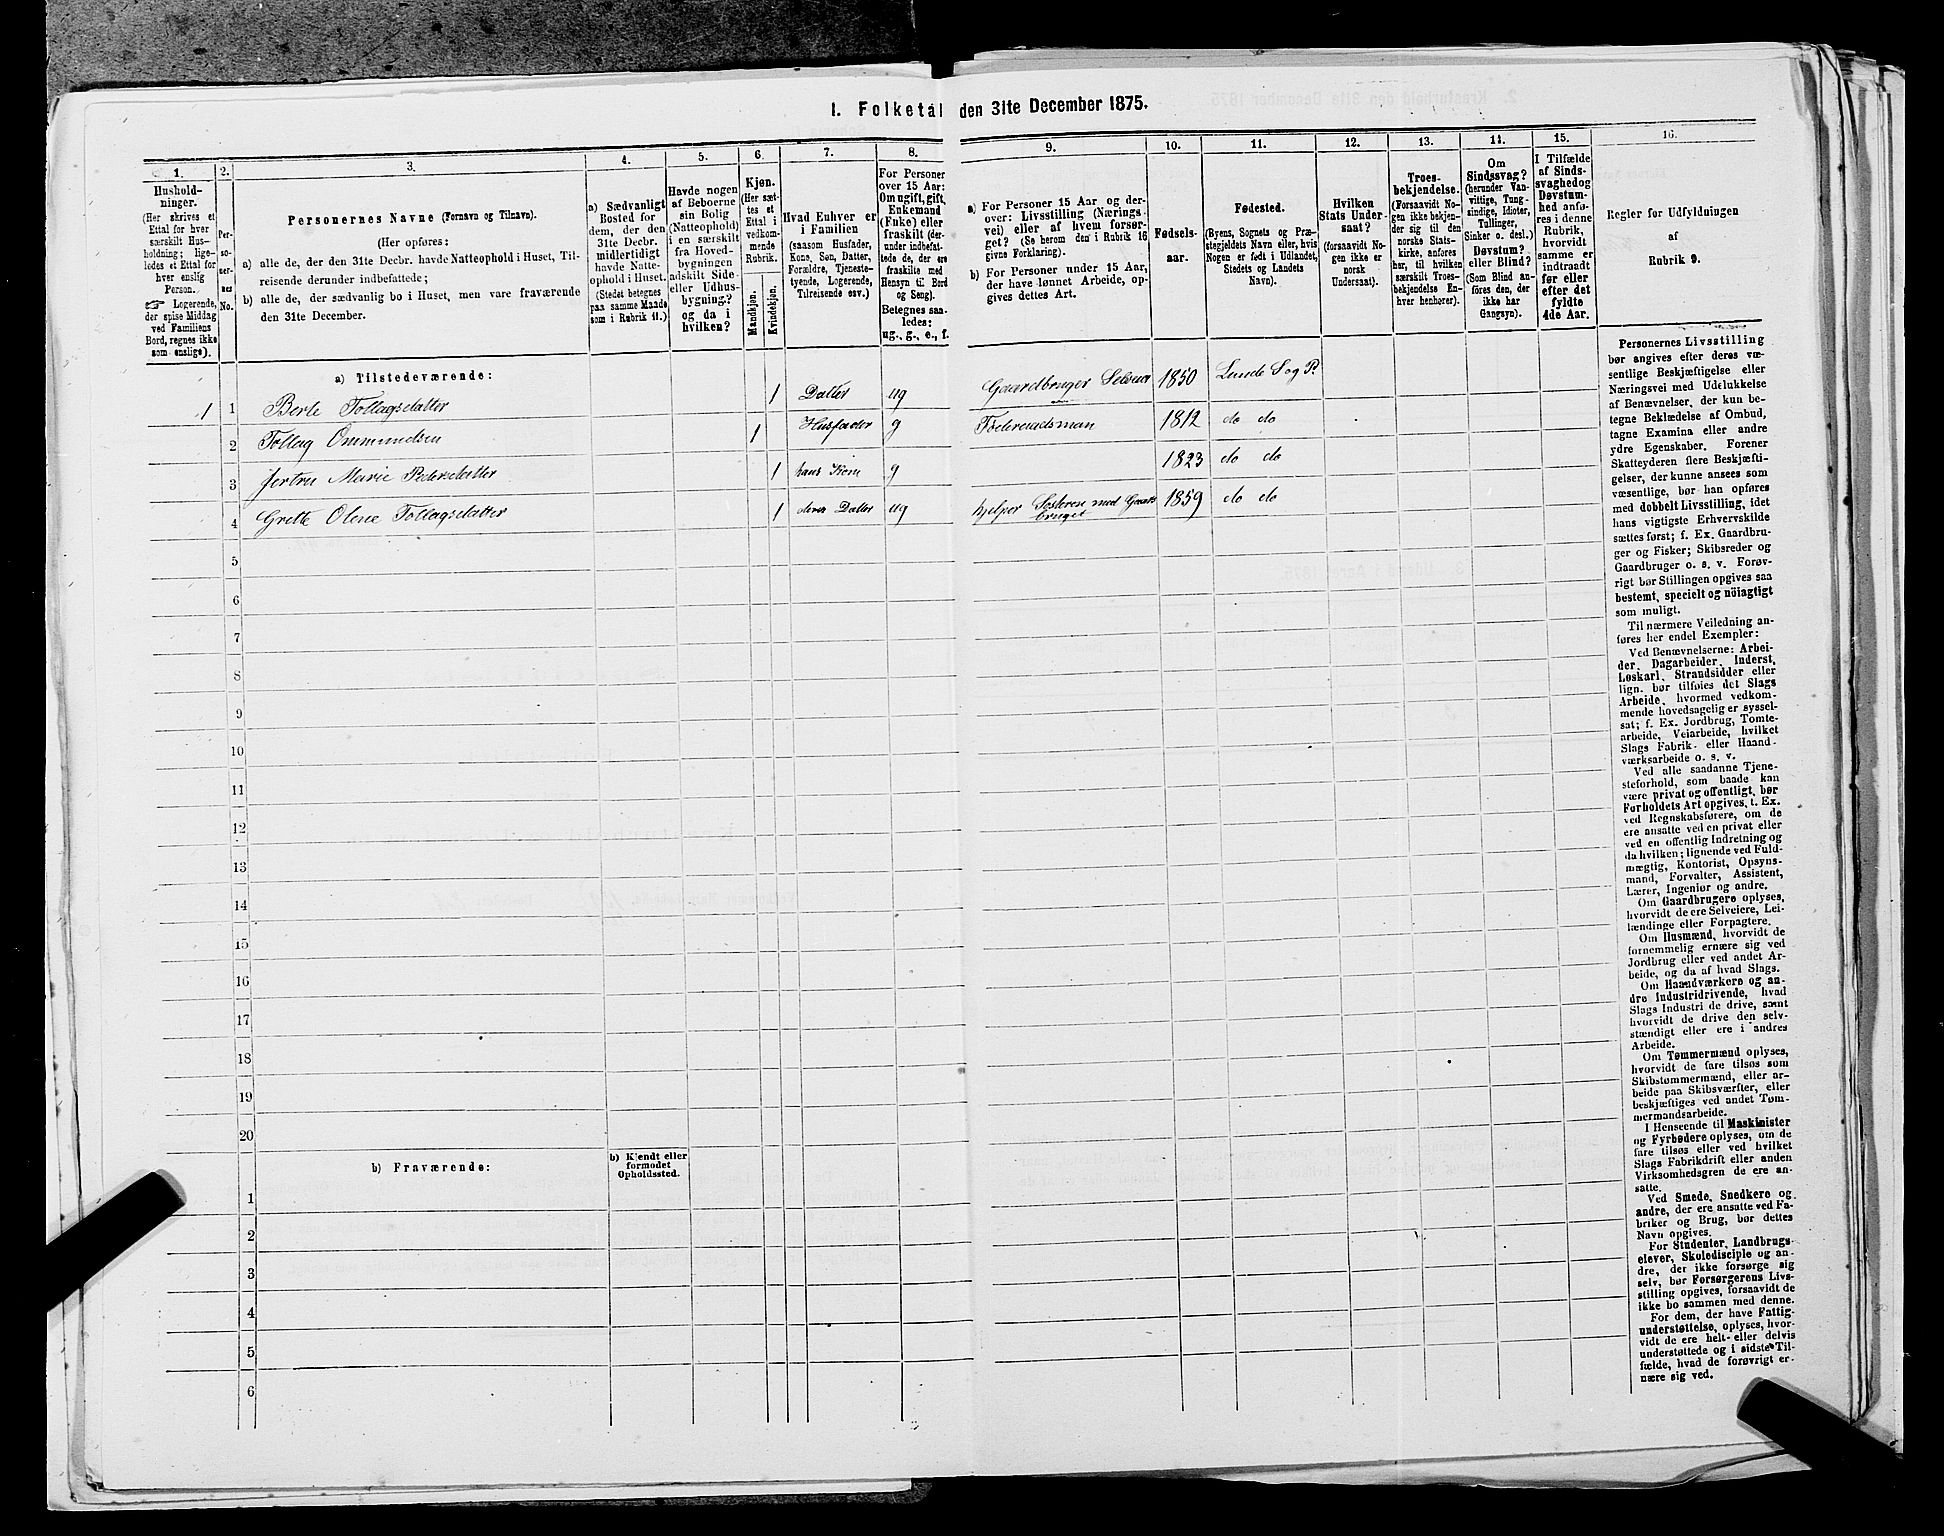 1. Folketal den 31te December 1875.
1.
Hushold-
ninger.
(Her skrives et
Ettal for hver
særskilt Hus-
holdning; lige-
ledes et Ettal for
hver enslig
Person.
☞ Logerende,
der spise Middag
ved Familiens
Bord, regnes ikke
som enslige).
2.
Per-
so-
ner-
nes
No.
3.
Personernes Navne (Fornavn og Tilnavn).
(Her opføres:
a) alle de, der den 31te Decbr. havde Natteophold i Huset, Til-
reisende derunder indbefattede;
b) alle de, der sædvanlig bo i Huset, men vare fraværende
den 31te December.
4.
a) Sædvanligt
Bosted for
dem, der den
31te Decbr.
midlertidigt
havde Natte-
ophold i Huset.
(Stedet betegnes
paa samme Maade
som i Rubrik 11.)
5.
Havde nogen
af Beboerne
sin Bolig
(Natteophold)
i en særskilt
fra Hoved-
bygningen
adskilt Side-
eller Udhus-
bygning?
og da i
hvilken?
6.
Kjøn.
(Her sæt-
tes et
Ettal i
vedkom-
mende
Rubrik.
Mandkjøn.
Kvindekjøn.
7.
Hvad Enhver er
i Familien
(saasom Husfader,
Kone, Søn, Datter,
Forældre, Tjeneste-
tyende, Logerende,
Tilreisende osv.)
8.
For Personer
over 15 Aar:
Om ugift, gift,
Enkemand
(Enke) eller
fraskilt (der-
under indbefat-
tede de, der ere
fraskilte med
Hensyn til Bord
og Seng).
Betegnes saa-
ledes:
ug., g., e., f.
9.
a) For Personer 15 Aar og der-
over: Livsstilling (Nærings-
vei) eller af hvem forsør-
get? (Se herom den i Rubrik 16
givne Forklaring).
b) For Personer under 15 Aar,
der have lønnet Arbeide, op-
gives dettes Art.
10.
Fødsels-
aar.
11.
Fødested.
(Byens, Sognets og Præ-
stegjeldets Navn eller, hvis
Nogen er født i Udlandet,
Stedets og Landets
Navn).
12.
Hvilken
Stats Under-
saat?
(forsaavidt No-
gen ikke er
norsk
Undersaat).
13.
Troes-
bekjendelse.
(Forsaavidt No-
gen ikke bekjen-
der sig til den
norske Stats-
kirke, anføres
her, til hvilken
særskilt Troes-
bekjendelse En-
hver henhører).
14.
Om
Sindssvag?
(herunder Van-
vittige, Tung-
sindige, Idioter,
Tullinger,
Sinker o. desl.)
Døvstum?
eller Blind?
(Som Blind an-
føres den, der
ikke har
Gangsyn).
15.
I Tilfælde
af Sinds-
svaghed og
Døvstum-
hed anfø-
res i denne
Rubrik,
hvorvidt
samme er
indtraadt
før eller
efter det
fyldte
4de Aar.
16.
Regler for Udfyldningen
af
Rubrik 9.
a) Tilstedeværende:
1 1 Berte Tollagsdatter 1 Datter ug Gaardbruger Selveier 1850 Lunde S og P.
2 Tollag Ommundsen 1 Husfader g Føderaadsman 1812 do do
3 Jertru Marie Pedersdatter 1 hans Kone g 1823 do do
4 Grette Olene Tollagsdatter 1 deres Datter ug hjelper Søsteren med Gaards 1859 do do
bruget
5
6
7
8
9
10
11
12
13
14
15
16
17
18
19
20
b) Fraværende:
b) Kjendt eller
formodet
Opholdssted.
1
2
3
4
5
6
Personernes Livsstilling
bør angives efter deres væ-
sentlige Beskjæftigelse eller
Næringsvei med Udelukkelse
af Benævnelser, der kun be-
tegne Beklædelse af Ombud,
tagne Examina eller andre
ydre Egenskaber. Forener
Skatteyderen flere Beskjæfti-
gelser, der kunne ansees som
væsentlige, bør han opføres
med dobbelt Livsstilling, idet
hans vigtigste Erhvervskilde
sættes først; f. Ex. Gaardbru-
ger og Fisker; Skibsreder og
Gaardbruger o. s. v. Forøv-
rigt bør Stillingen opgives saa
bestemt, specielt og nöiagtigt
som muligt.
Til nærmere Veiledning an-
føres her endel Exempler:
Ved Benævnelserne: Arbei-
der, Dagarbeider, Inderst,
Løskarl, Strandsidder eller
lign. bør tilføies det Slags
Arbeide, hvormed vedkom-
mende hovedsagelig er syssel-
sat; f. Ex. Jordbrug, Tomte-
arbeide, Veiarbeide, hvilket
Slags Fabrik- eller Haand-
værksarbeide o. s. v.
Ved alle saadanne Tjene-
steforhold, som baade kan
være privat og offentligt, bør
Forholdets Art opgives, t. Ex.
ved Regnskabsførere, om de
ere ansatte ved en privat eller
ved en offentlig Indretning og
da hvilken; lignende ved Fuld-
mægtig, Kontorist, Opsyns-
mand, Forvalter, Assistent,
Lærer, Ingeniør og andre.
Om Gaardbrugere oplyses,
hvorvidt de ere Selveiere, Lei-
lændinge eller Forpagtere.
Om Husmænd, hvorvidt de
fornemmelig ernære sig ved
Jordbrug eller ved andet Ar-
beide, og da af hvad Slags.
Om Haandværkere og an-
dre Industridrivende, hvad
Slags Industri de drive, samt
hvorvidt de drive den selv-
stændigt eller ere i andres
Arbeide.
Om Tømmermænd oplyses,
hvorvidt de fare tilsøs som
Skibstømmermænd, eller ar-
beide paa Skibsværfter, eller
beskjæftiges ved andet Tøm-
mermandsarbeide.
I Henseende til Maskinister
og Fyrbødere oplyses, om de
fare tilsøs eller ved hvilket
Slags Fabrikdrift eller anden
Virksomhedsgren de ere an-
satte.
Ved Smede, Snedkere og
andre, der ere ansatte ved Fa-
briker og Brug, bør dettes
Navn opgives.
For Studenter, Landbrugs-
elever, Skoledisciple og an-
dre, der ikke forsørge sig
selv, bør Forsørgerens Livs-
stilling opgives, forsaavidt de
ikke bo sammen med denne.
For dem, der have Fattig-
understøttelse, oplyses, hvor-
vidt de ere helt- eller delvis
understøttede og i sidste Til-
fælde, hvad de forøvrigt er-
nære sig ved.